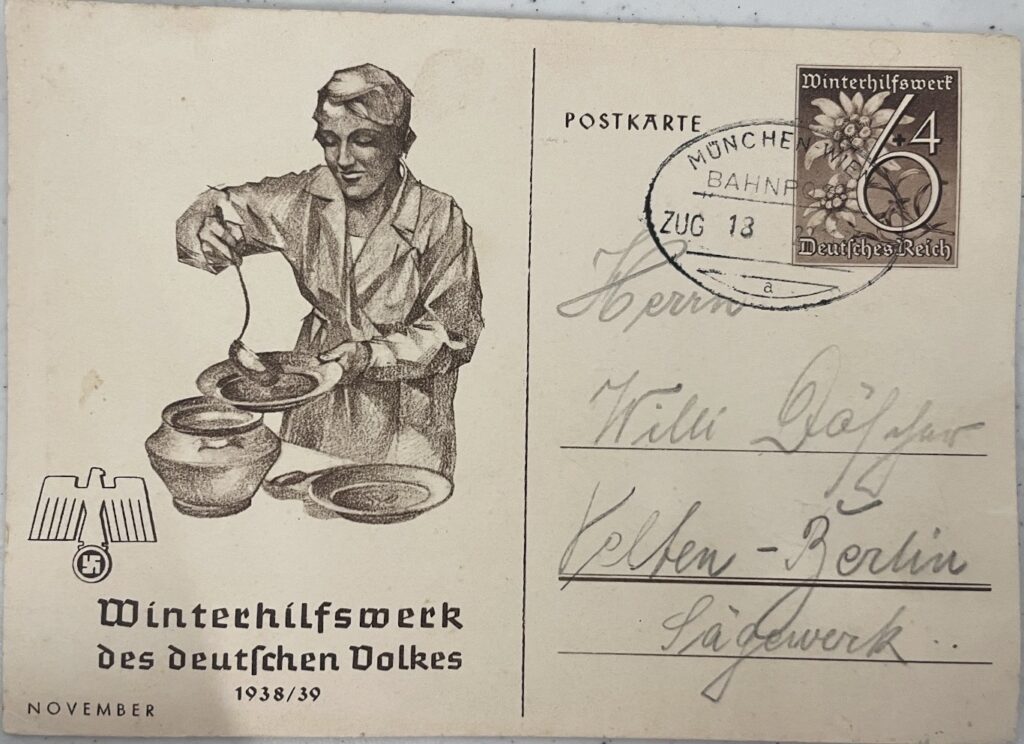 Winterhilfswerk
des deutschen Volkes
1938/39
NOVEMBER
POSTKARTE
Winterhilfswerk
6+4
Deutsches Reich
MÜNCHEN-WIEN
BAHNPOST
ZUG 18
a
Herrn
Willi
Velten - Berlin
Sägewerk